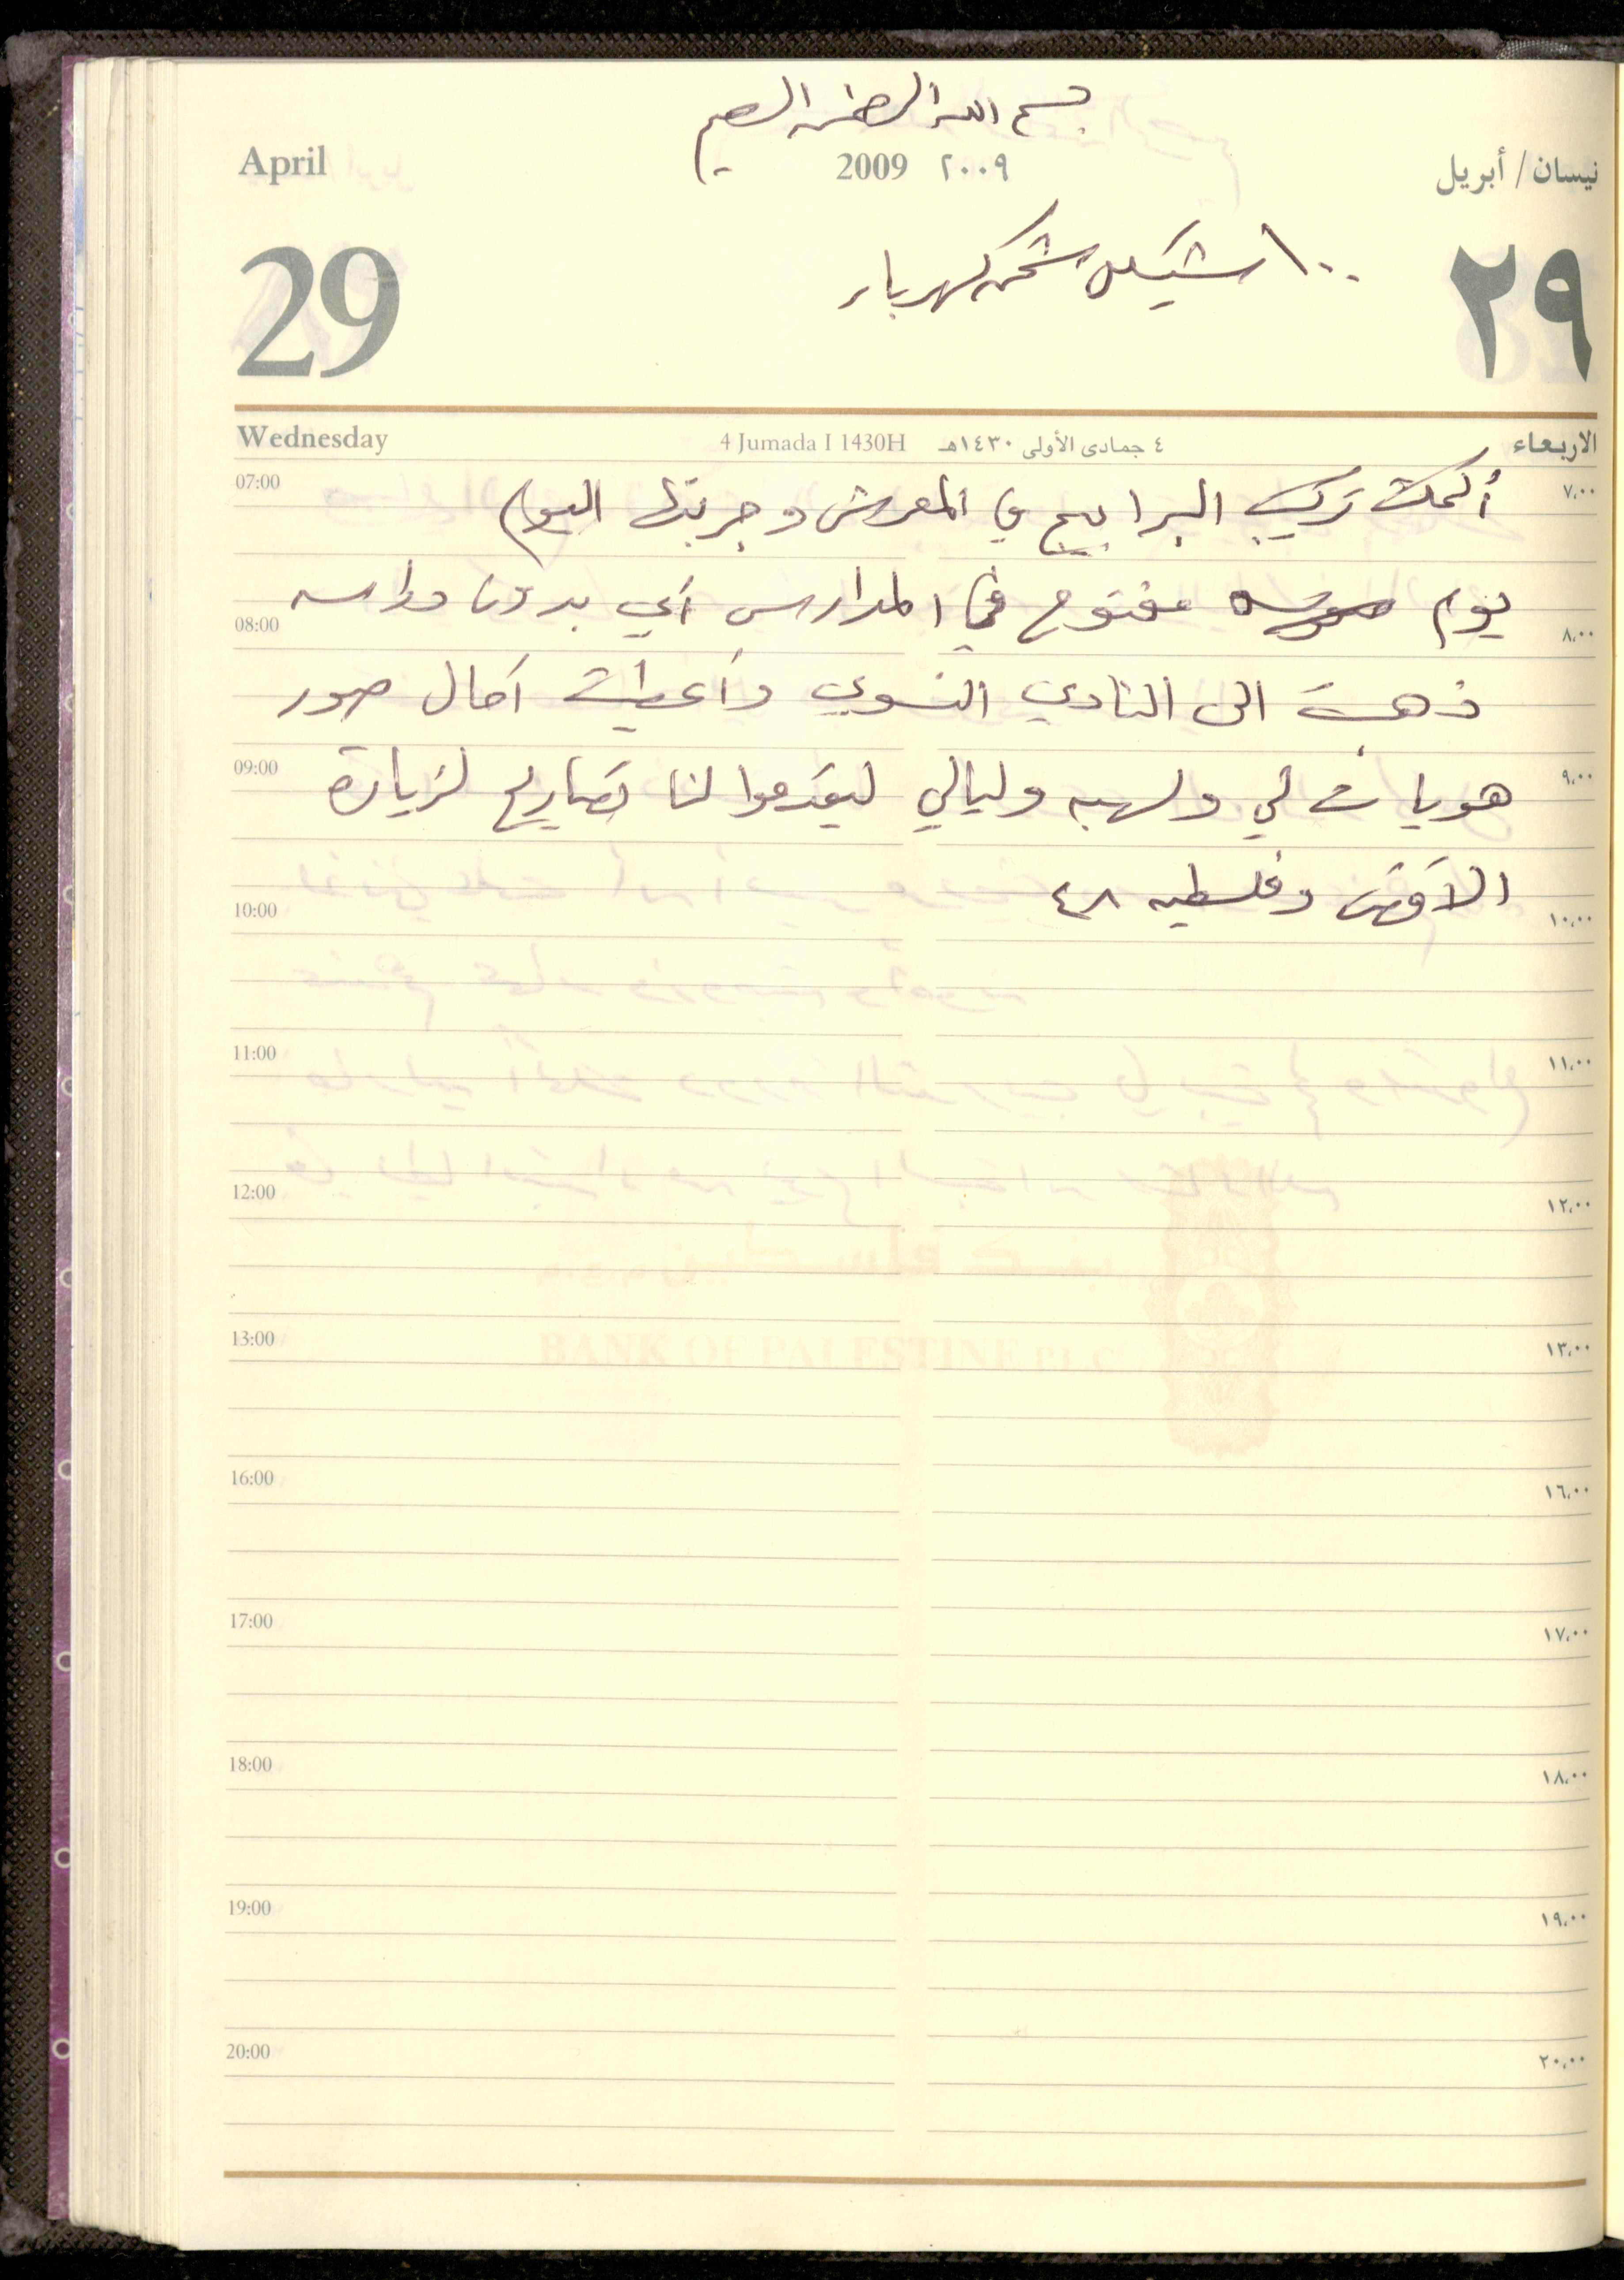 بسم الله الرحمن الرحيم
April 2009 ٢٠٠٩ نيسان / أبريل
29 ١٠٠ شيكل شحن كهرباء ٢٩
Wednesday 4 Jumada I 1430H ٤ جمادى الأولى ١٤٣٠هـ الاربعاء
07:00 أكملت تركيب البرابيج في المعرش وجربتها اليوم ٧،٠٠
يوم مفتوح في المدارس أي بدون دراسه
08:00 ٨،٠٠
ذهبت الى النادي النسوي وأعطيت آمال صور
09:00 هويات لي ولهبه وليالي ليقدموا لنا تصاريح لزيارة ٩،٠٠
الأقصى وفلسطين ٤٨
10:00 ١٠،٠٠
11:00 ١١،٠٠
12:00 ١٢،٠٠
بنك فلسطين
BANK OF PALESTINE PLC
13:00 ١٣،٠٠
16:00 ١٦،٠٠
17:00 ١٧،٠٠
18:00 ١٨،٠٠
19:00 ١٩،٠٠
20:00 ٢٠،٠٠